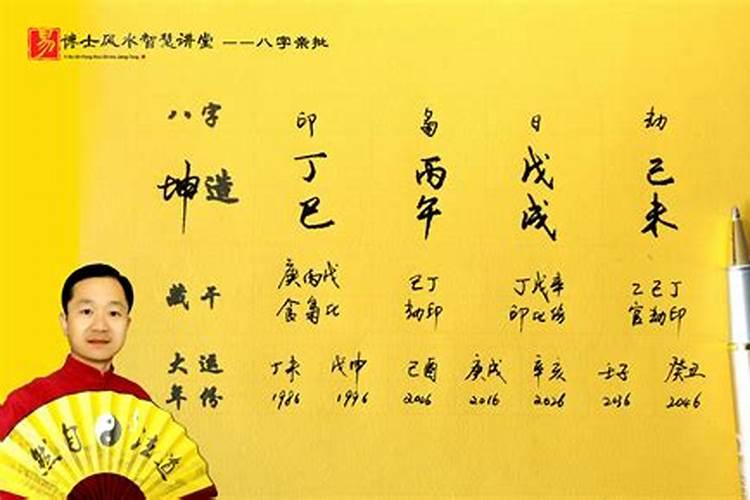 易博士风水智慧讲堂 ——八字亲批
八字 印 枭 日 劫
坤造 丁 丙 戊 己
巳 午 戌 未
藏干 庚丙戊 己丁 丁戊辛 乙己丁
食枭比 劫印 印比伤 官劫印
大运 丁未 戊申 己酉 庚戌 辛亥 壬子 癸丑
年份 1986 1996 2006 2016 2026 2036 2046
道法自然